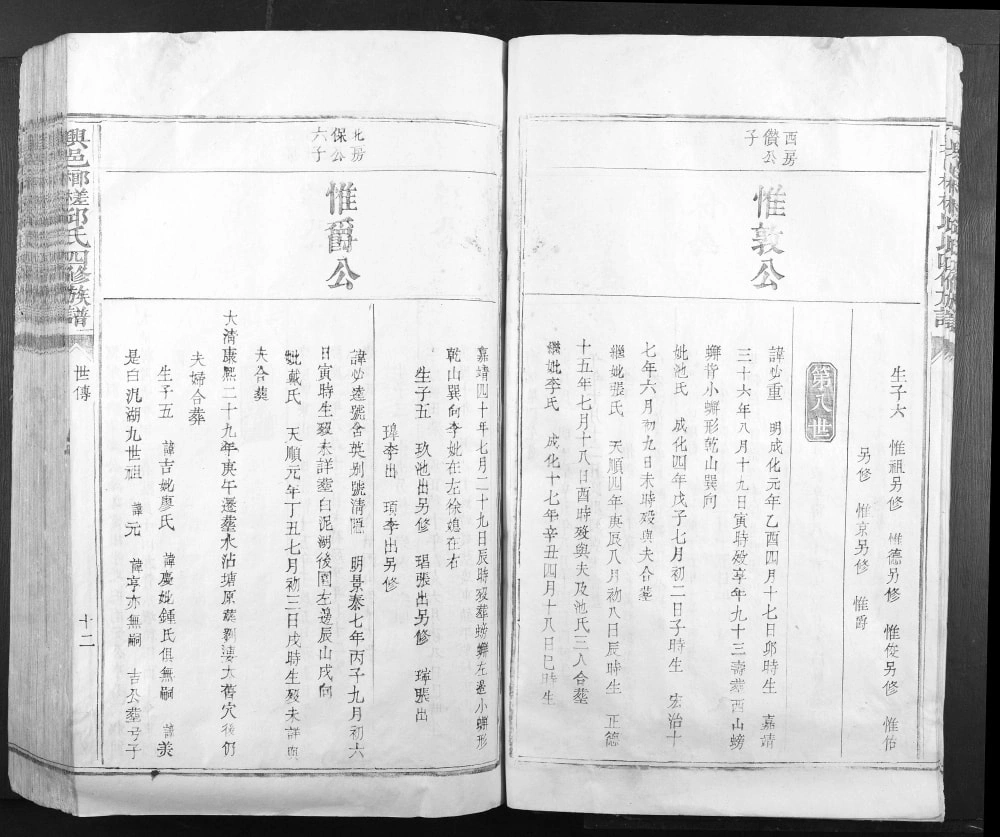 生子六 惟祖另修 惟德另修 惟俊另修 惟佑
另修 惟京另修 惟爵
第八世
西房
儹公
子
惟敦公
諱妙重 明成化元年乙酉四月十七日卯時生 嘉靖
三十六年八月十九日寅時歿享年九十三壽塟西山螃
蠏背小蠏形乾山巽向
妣池氏 成化四年戊子七月初二日子時生 宏治十
七年六月初九日未時歿與夫合塟
繼妣張氏 天順四年庚辰八月初八日辰時生 正德
十五年七月十八日酉時歿與夫及池氏三人合塟
繼妣李氏 成化十七年辛丑四月十八日巳時生
嘉靖四十年七月二十九日辰時歿葬螃蠏左邊小蠏形
乾山巽向李妣在左徐媳在右
生子五 玖池出另修 琩張出另修 璀張出
璋李出 項李出另修
北房
保公
六子
惟爵公
諱妙遠號舍英别號清隱 明景泰七年丙子九月初六
日寅時生歿未詳塟白泥湖後園左邊辰山戌向
妣戴氏 天順元年丁丑七月初三日戌時生歿未詳與
夫合葬
大清康熙二十九年庚午遷塟水沾塘原塟劉婆大舊穴後仍
夫婦合葬
生子五 諱吉妣廖氏 諱慶妣鍾氏俱無嗣 諱美
是白汎湖九世祖 諱元 諱亨亦無嗣 吉公塟弓子
興邑槨槎邱氏四修族譜
世傳
十二